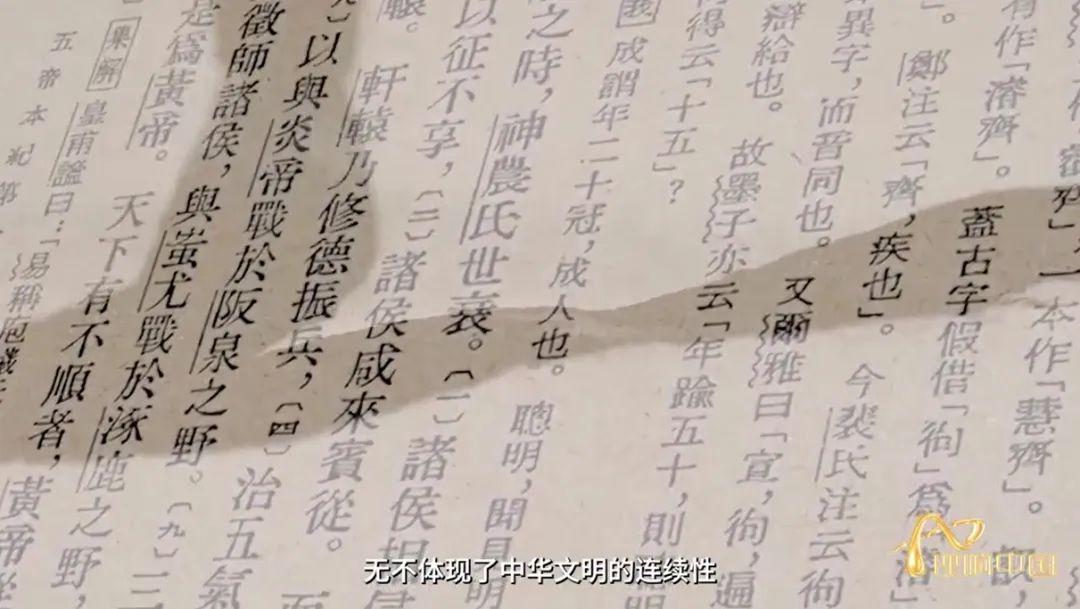 」，一本作「慧齊」。
有作「濬齊」。蓋古字假借「徇」爲
」。鄭注云「齊，疾也」。今裴氏注云徇
異字，而音同也。又爾雅曰「宣，徇，遍
辯給也。故墨子亦云「年踰五十，則聰明
得云「十五」？
國成謂年二十冠，成人也。聰明，聞見明
之時，神農氏世衰。〔一〕諸侯
以征不享，〔二〕諸侯咸來賓從。
轅。軒轅乃修德振兵，〔四〕治五氣
〕以與炎帝戰於阪泉之野。〔九〕三
徵師諸侯，與蚩尤戰於涿鹿之野，
是爲黃帝。天下有不順者，黃帝從
集解 皇甫謐曰：「易稱庖犧
五帝本紀第
无不体现了中华文明的连续性